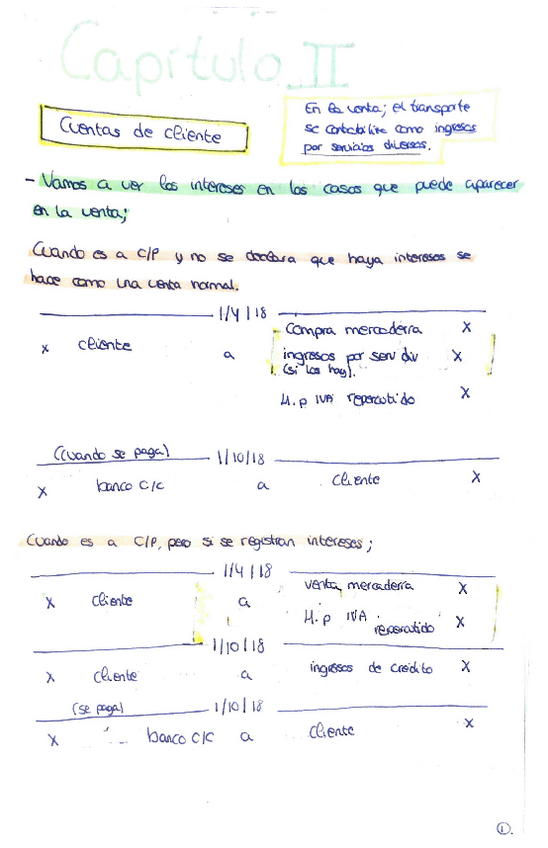 Capítulo II
Cuentas de cliente
En la venta; el transporte
se contabiliza como ingresos
por servicios diversos.
- Vamos a ver los intereses en los casos que puede aparecer
en la venta;
Cuando es a C/P y no se declara que haya intereses se
hace como una venta normal.
1/4/18
x cliente a Compra mercadería x
ingresos por serv div x
(si los hay).
H.p IVA repercutido x
(cuando se paga) 1/10/18
x banco c/c a cliente x
Cuando es a C/P, pero si se registran intereses;
1/4/18
x cliente a venta mercadería x
H.p IVA
repercutido x
1/10/18
x cliente a ingresos de credito x
(se paga) 1/10/18
x banco c/c a cliente x
1.